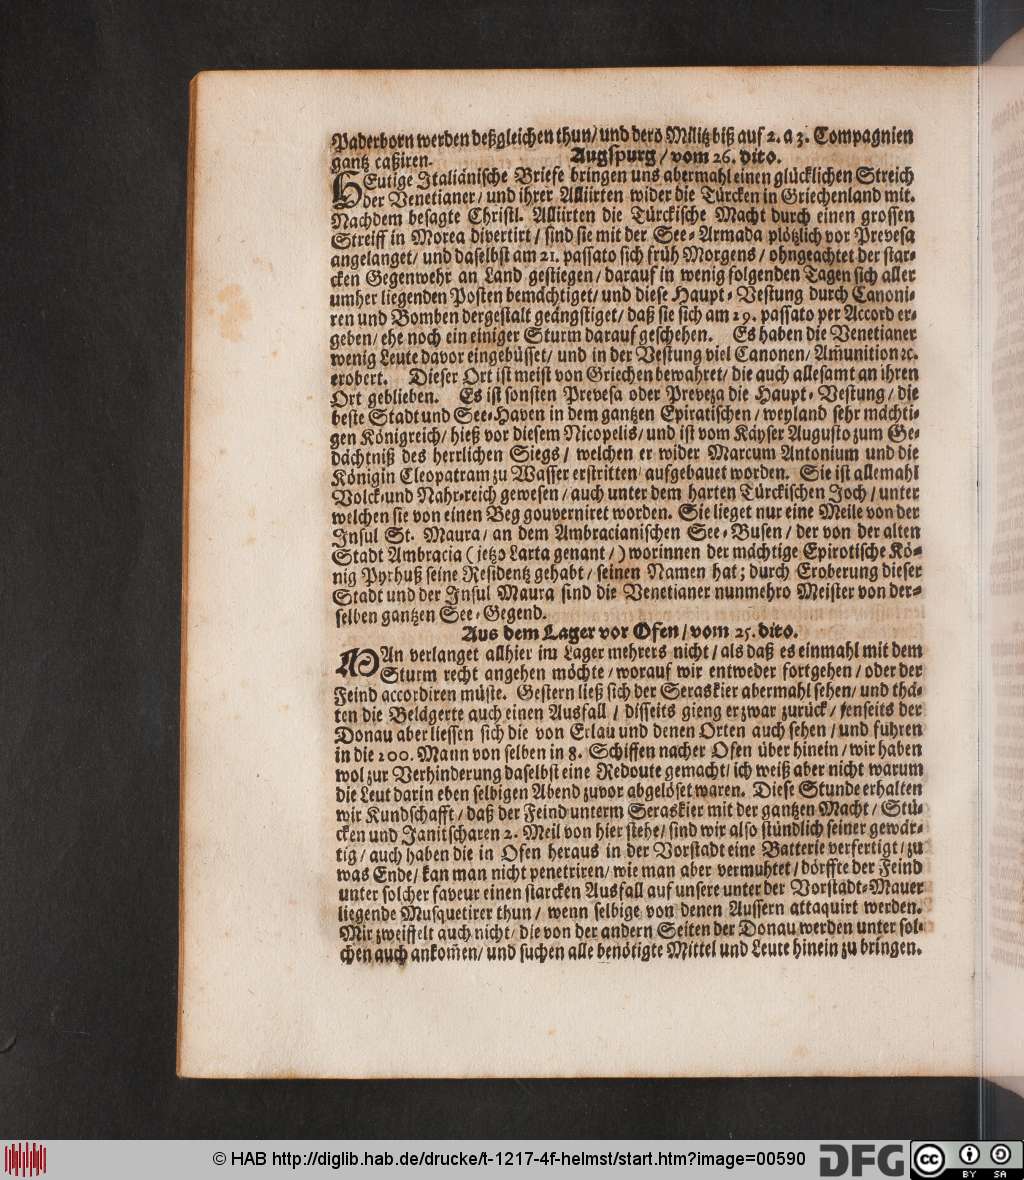 Paderborn werden deßgleichen thun/ und dero Militz biß auf 2. a 3. Compagnien
gantz caßiren.
Augspurg / vom 26. dito.
HEutige Italiänische Briefe bringen uns abermahl einen glücklichen Streich
der Venetianer/ und ihrer Alliirten wider die Türcken in Griechenland mit.
Nachdem besagte Christl. Alliirten die Türckische Macht durch einen grossen
Streiff in Morea divertirt / sind sie mit der See-Armada plötzlich vor Prevesa
angelanget/ und daselbst am 21. passato sich früh Morgens / ohngeachtet der star-
cken Gegenwehr an Land gestiegen / darauf in wenig folgenden Tagen sich aller
umher liegenden Posten bemächtiget/ und diese Haupt-Vestung durch Canoni-
ren und Bomben dergestalt geängstiget/ daß sie sich am 29. passato per Accord er-
geben/ ehe noch ein einiger Sturm darauf geschehen. Es haben die Venetianer
wenig Leute davor eingebüsset/ und in der Vestung viel Canonen/ Am̃unition ꝛc.
erobert. Dieser Ort ist meist von Griechen bewahret/ die auch allesamt an ihren
Ort geblieben. Es ist sonsten Prevesa oder Preveza die Haupt-Vestung / die
beste Stadt und See-Haven in dem gantzen Epiratischen / weyland sehr mächti-
gen Königreich/ hieß vor diesem Nicopelis/ und ist vom Käyser Augusto zum Ge-
dächtniß des herrlichen Siegs / welchen er wider Marcum Antonium und die
Königin Cleopatram zu Wasser erstritten/ aufgebauet worden. Sie ist allemahl
Volck-und Nahr-reich gewesen / auch unter dem harten Türckischen Joch / unter
welchen sie von einen Beg gouverniret worden. Sie lieget nur eine Meile von der
Insul St. Maura/ an dem Ambracianischen See-Busen / der von der alten
Stadt Ambracia (jetzo Larta genant/) worinnen der mächtige Epirotische Kö-
nig Pyrhuß seine Residentz gehabt / seinen Namen hat; durch Eroberung dieser
Stadt und der Insul Maura sind die Venetianer nunmehro Meister von der-
selben gantzen See-Gegend.
Aus dem Lager vor Ofen / vom 25. dito.
MAn verlanget allhier im Lager mehrers nicht / als daß es einmahl mit dem
Sturm recht angehen möchte / worauf wir entweder fortgehen / oder der
Feind accordiren müste. Gestern ließ sich der Seraskier abermahl sehen/ und thä-
ten die Belägerte auch einen Ausfall / disseits gieng er zwar zurück / jenseits der
Donau aber liessen sich die von Erlau und denen Orten auch sehen / und fuhren
in die 200. Mann von selben in 8. Schiffen nacher Ofen über hinein / wir haben
wol zur Verhinderung daselbst eine Redoute gemacht/ ich weiß aber nicht warum
die Leut darin eben selbigen Abend zuvor abgelöset waren. Diese Stunde erhalten
wir Kundschafft / daß der Feind unterm Seraskier mit der gantzen Macht / Stü-
cken und Janitscharen 2. Meil von hier stehe/ sind wir also stündlich seiner gewär-
tig / auch haben die in Ofen heraus in der Vorstadt eine Batterie verfertigt / zu
was Ende/ kan man nicht penetriren/ wie man aber vermuhtet / dörffte der Feind
unter solcher faveur einen starcken Ausfall auf unsere unter der Vorstadt-Mauer
liegende Musquetirer thun / wenn selbige von denen Aussern attaquirt werden.
Mir zweiffelt auch nicht/ die von der andern Seiten der Donau werden unter sol-
chen auch ankom̃en/ und suchen alle benötigte Mittel und Leute hinein zu bringen.
© HAB http://diglib.hab.de/drucke/t-1217-4f-helmst/start.htm?image=00590
DFG
cc BY SA